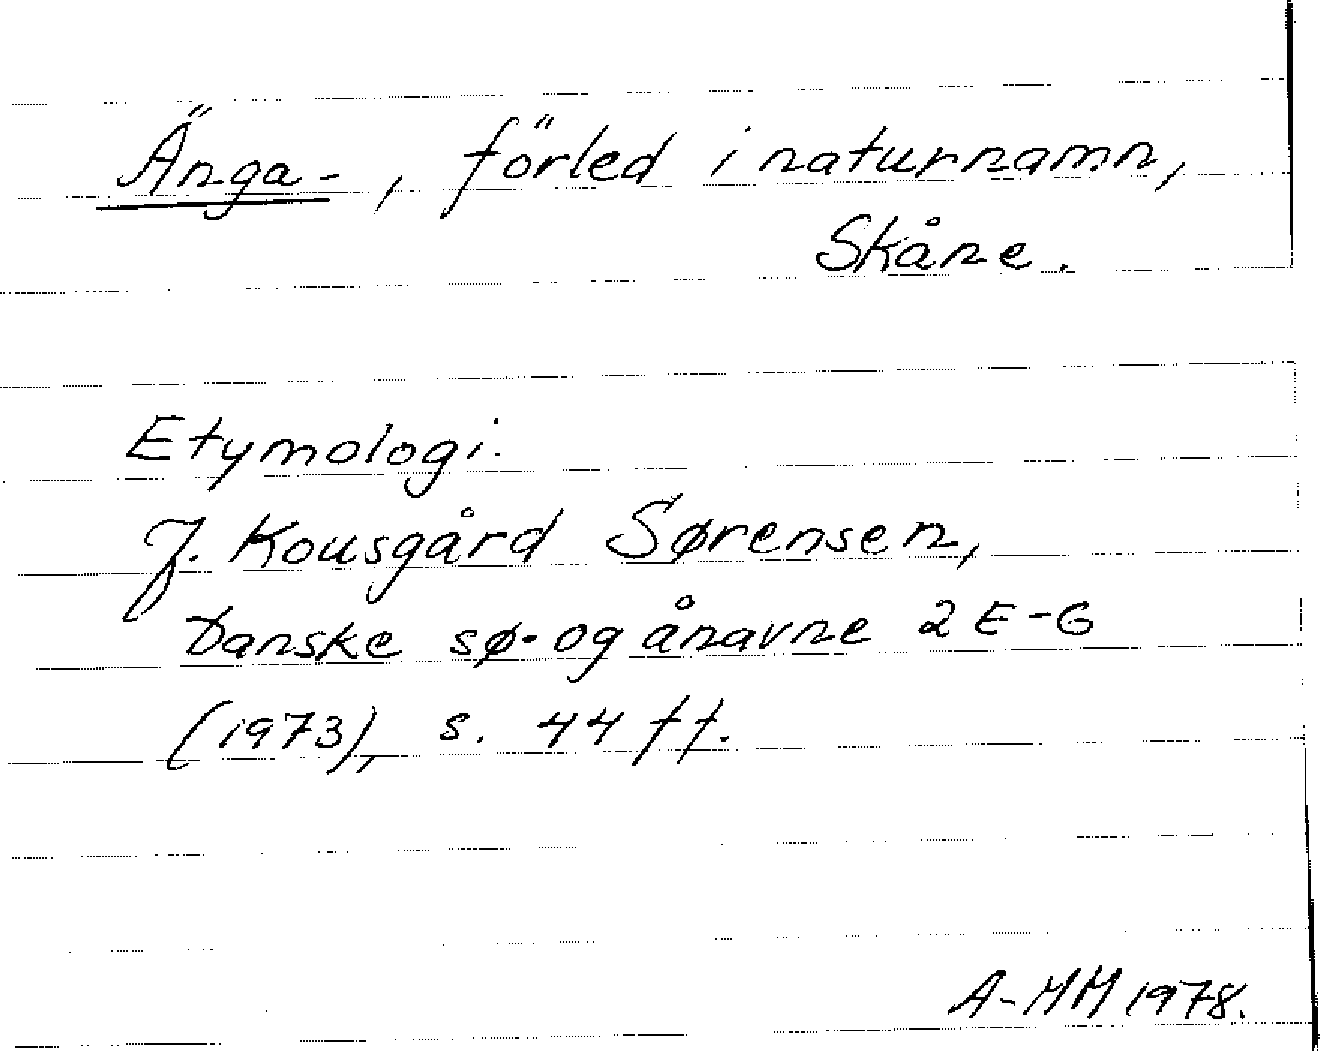 Änga-, förled i naturnamn,
Skåne.
Etymologi.
J. Kousgård Sørensen,
Danske sø- og ånavne 2 E-G
(1973), s. 44 ff.
A-MM 1978.